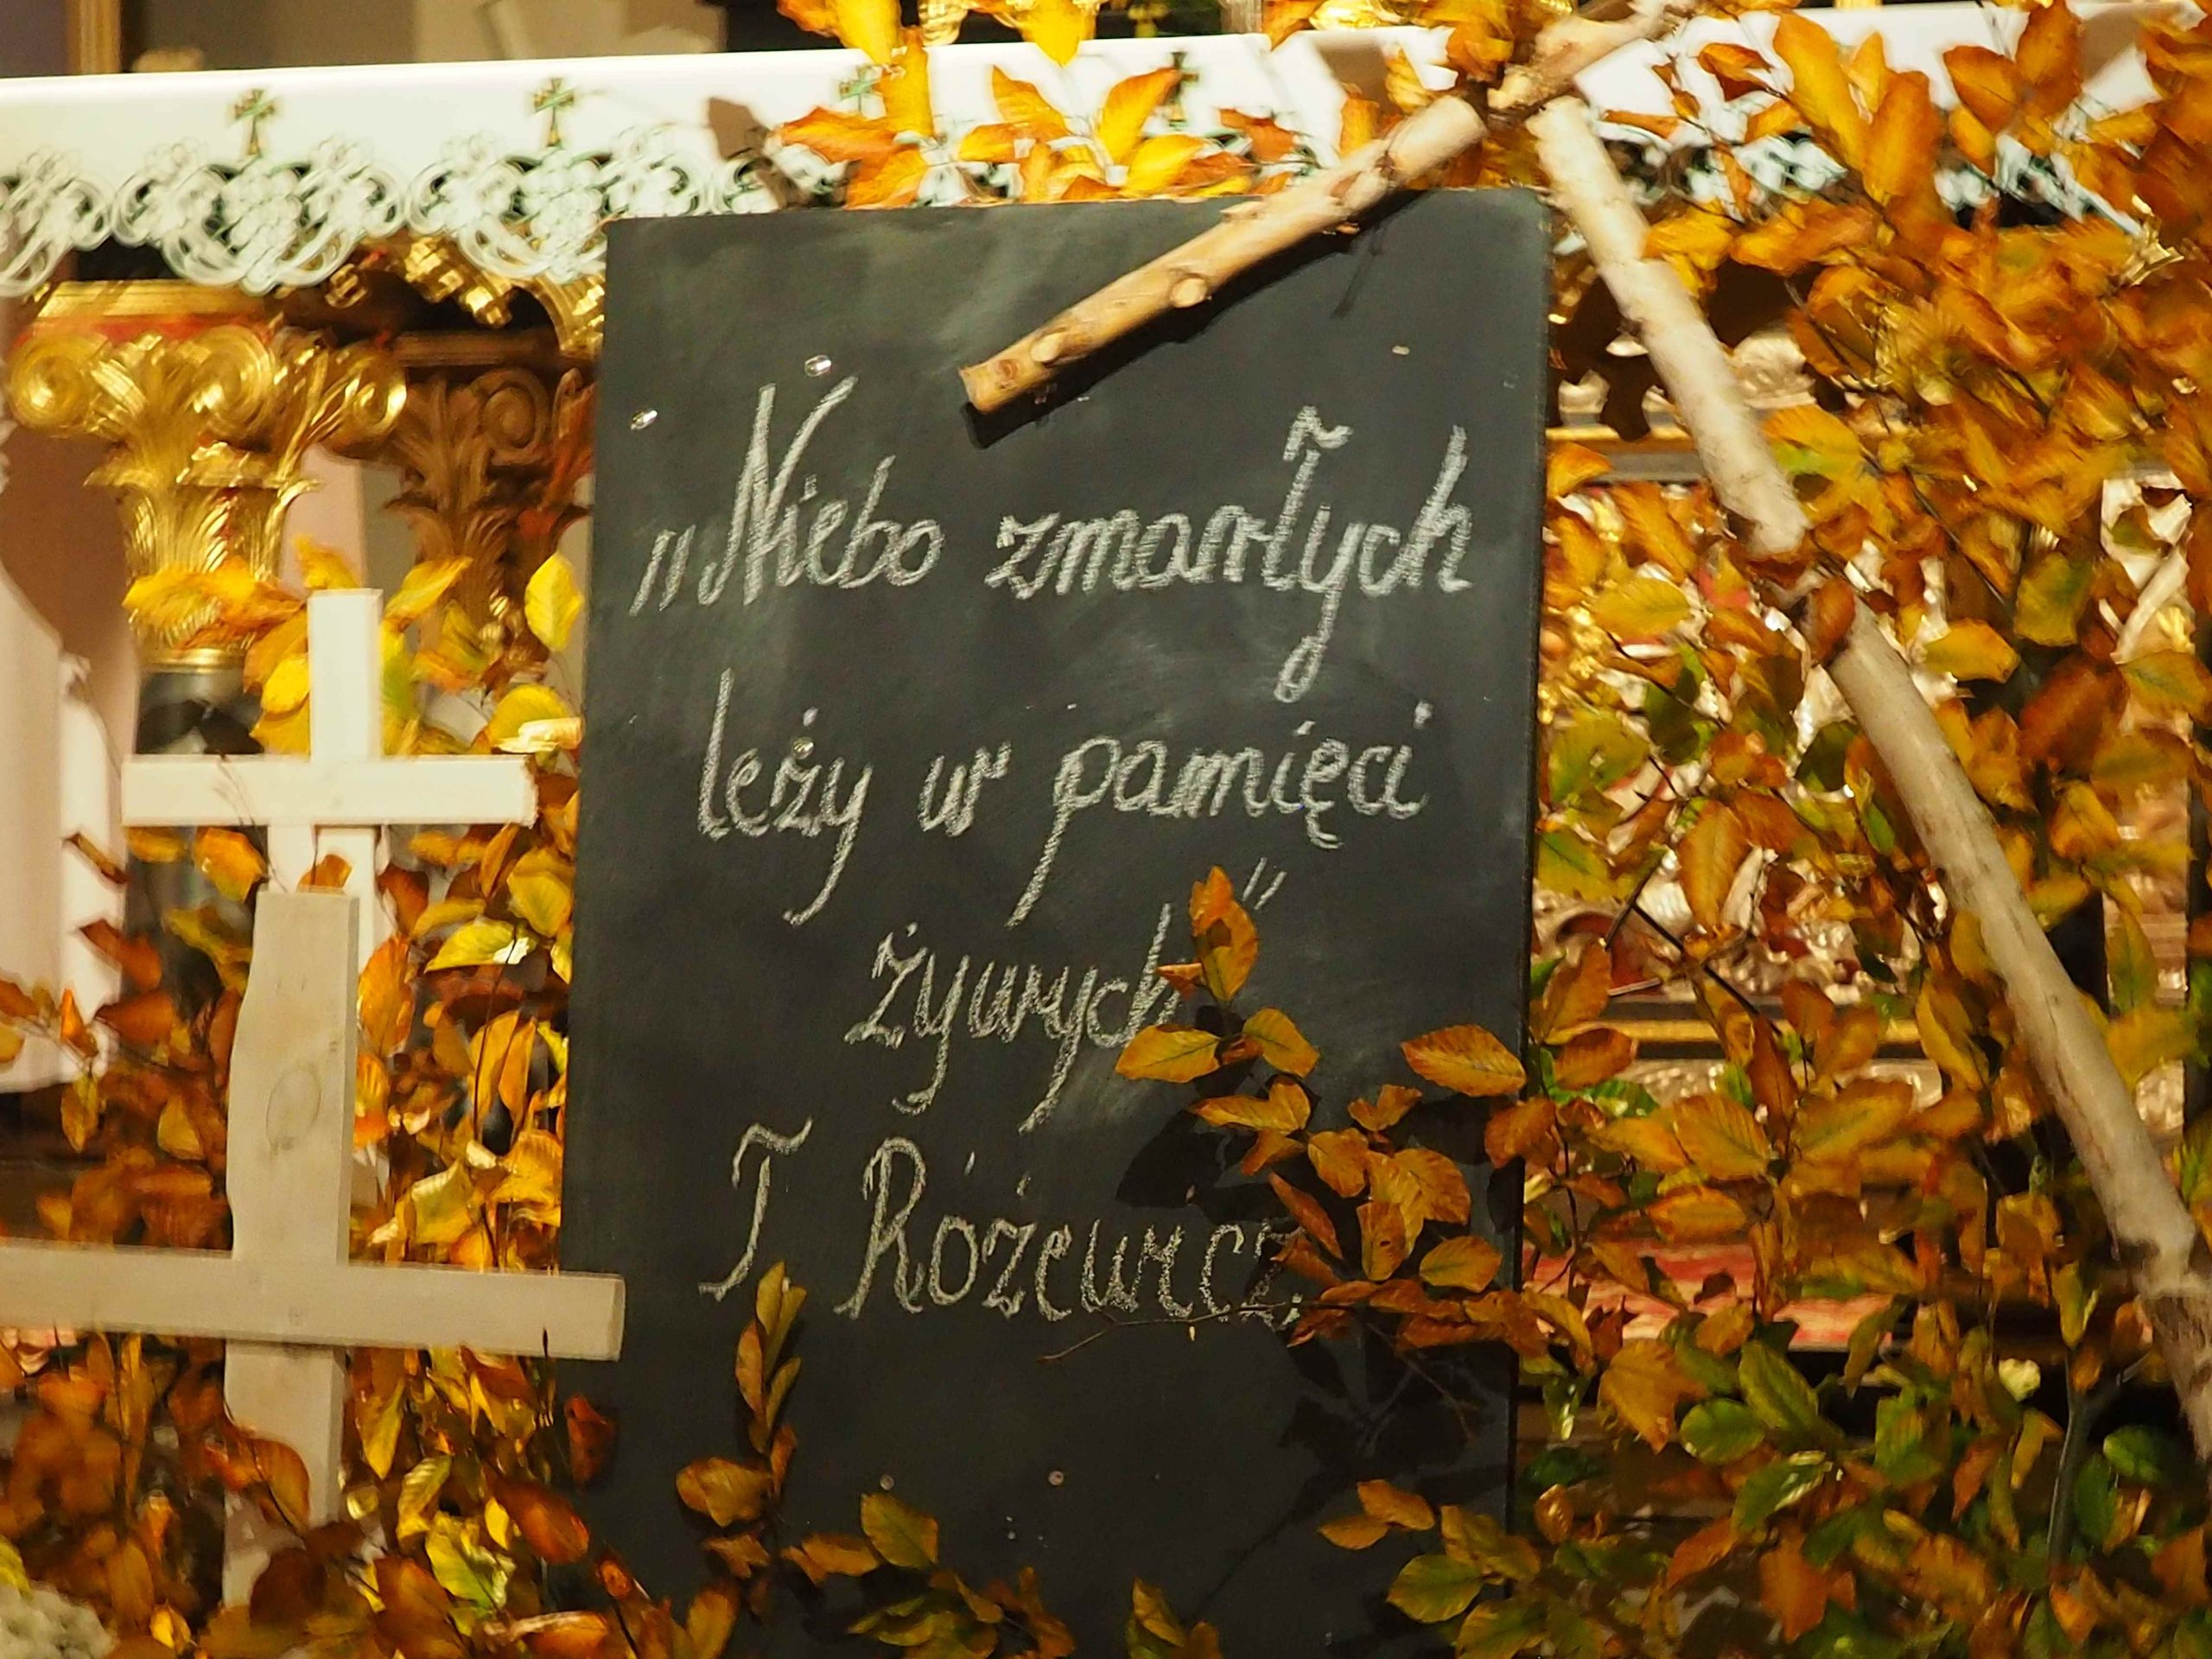 „Niebo zmarłych
leży w pamięci
żywych"
T. Różewicz